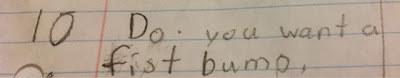 10 Do. you want a
fist bump.